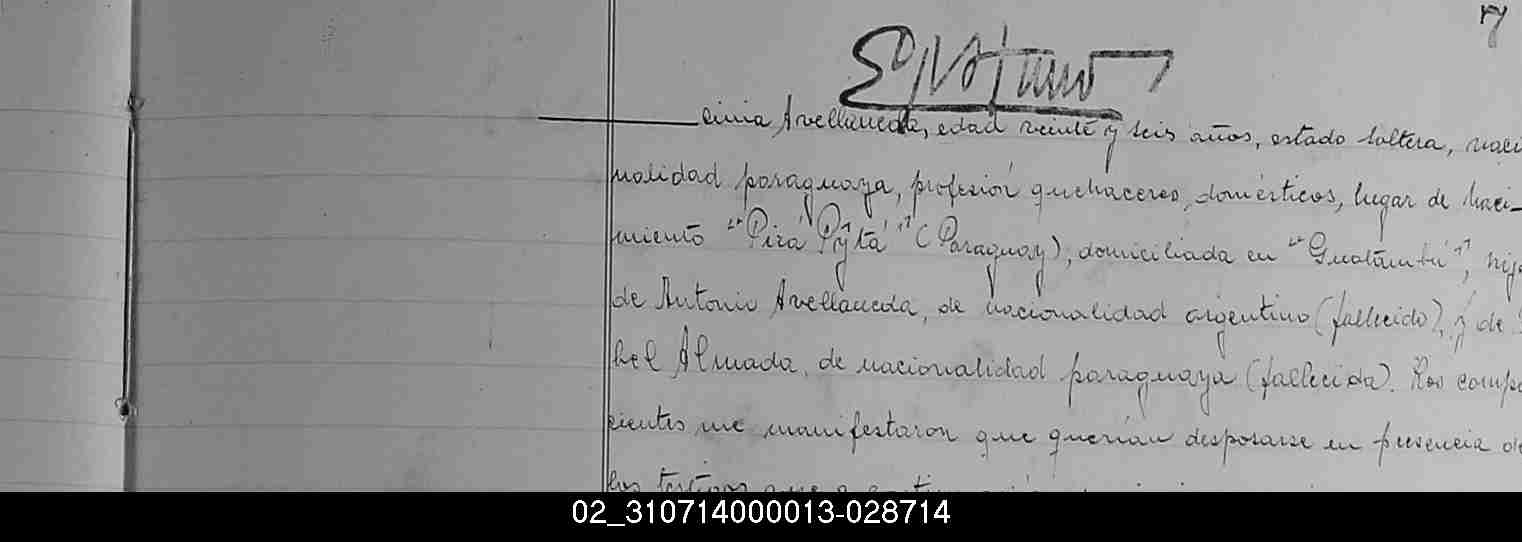 7
cinia Avellaneda, edad veinte y seis años, estado soltera, naci
nalidad paraguaya, profesión quehaceres domésticos, lugar de naci-
miento "Pirá Pytá" (Paraguay), domiciliada en "Guatambú", hija
de Antonio Avellaneda, de nacionalidad argentino (fallecido), y de
bel Almada, de nacionalidad paraguaya (fallecida). Los compa
cientes me manifestaron que querían desposarse en presencia de
los testigos que a
02_310714000013-028714